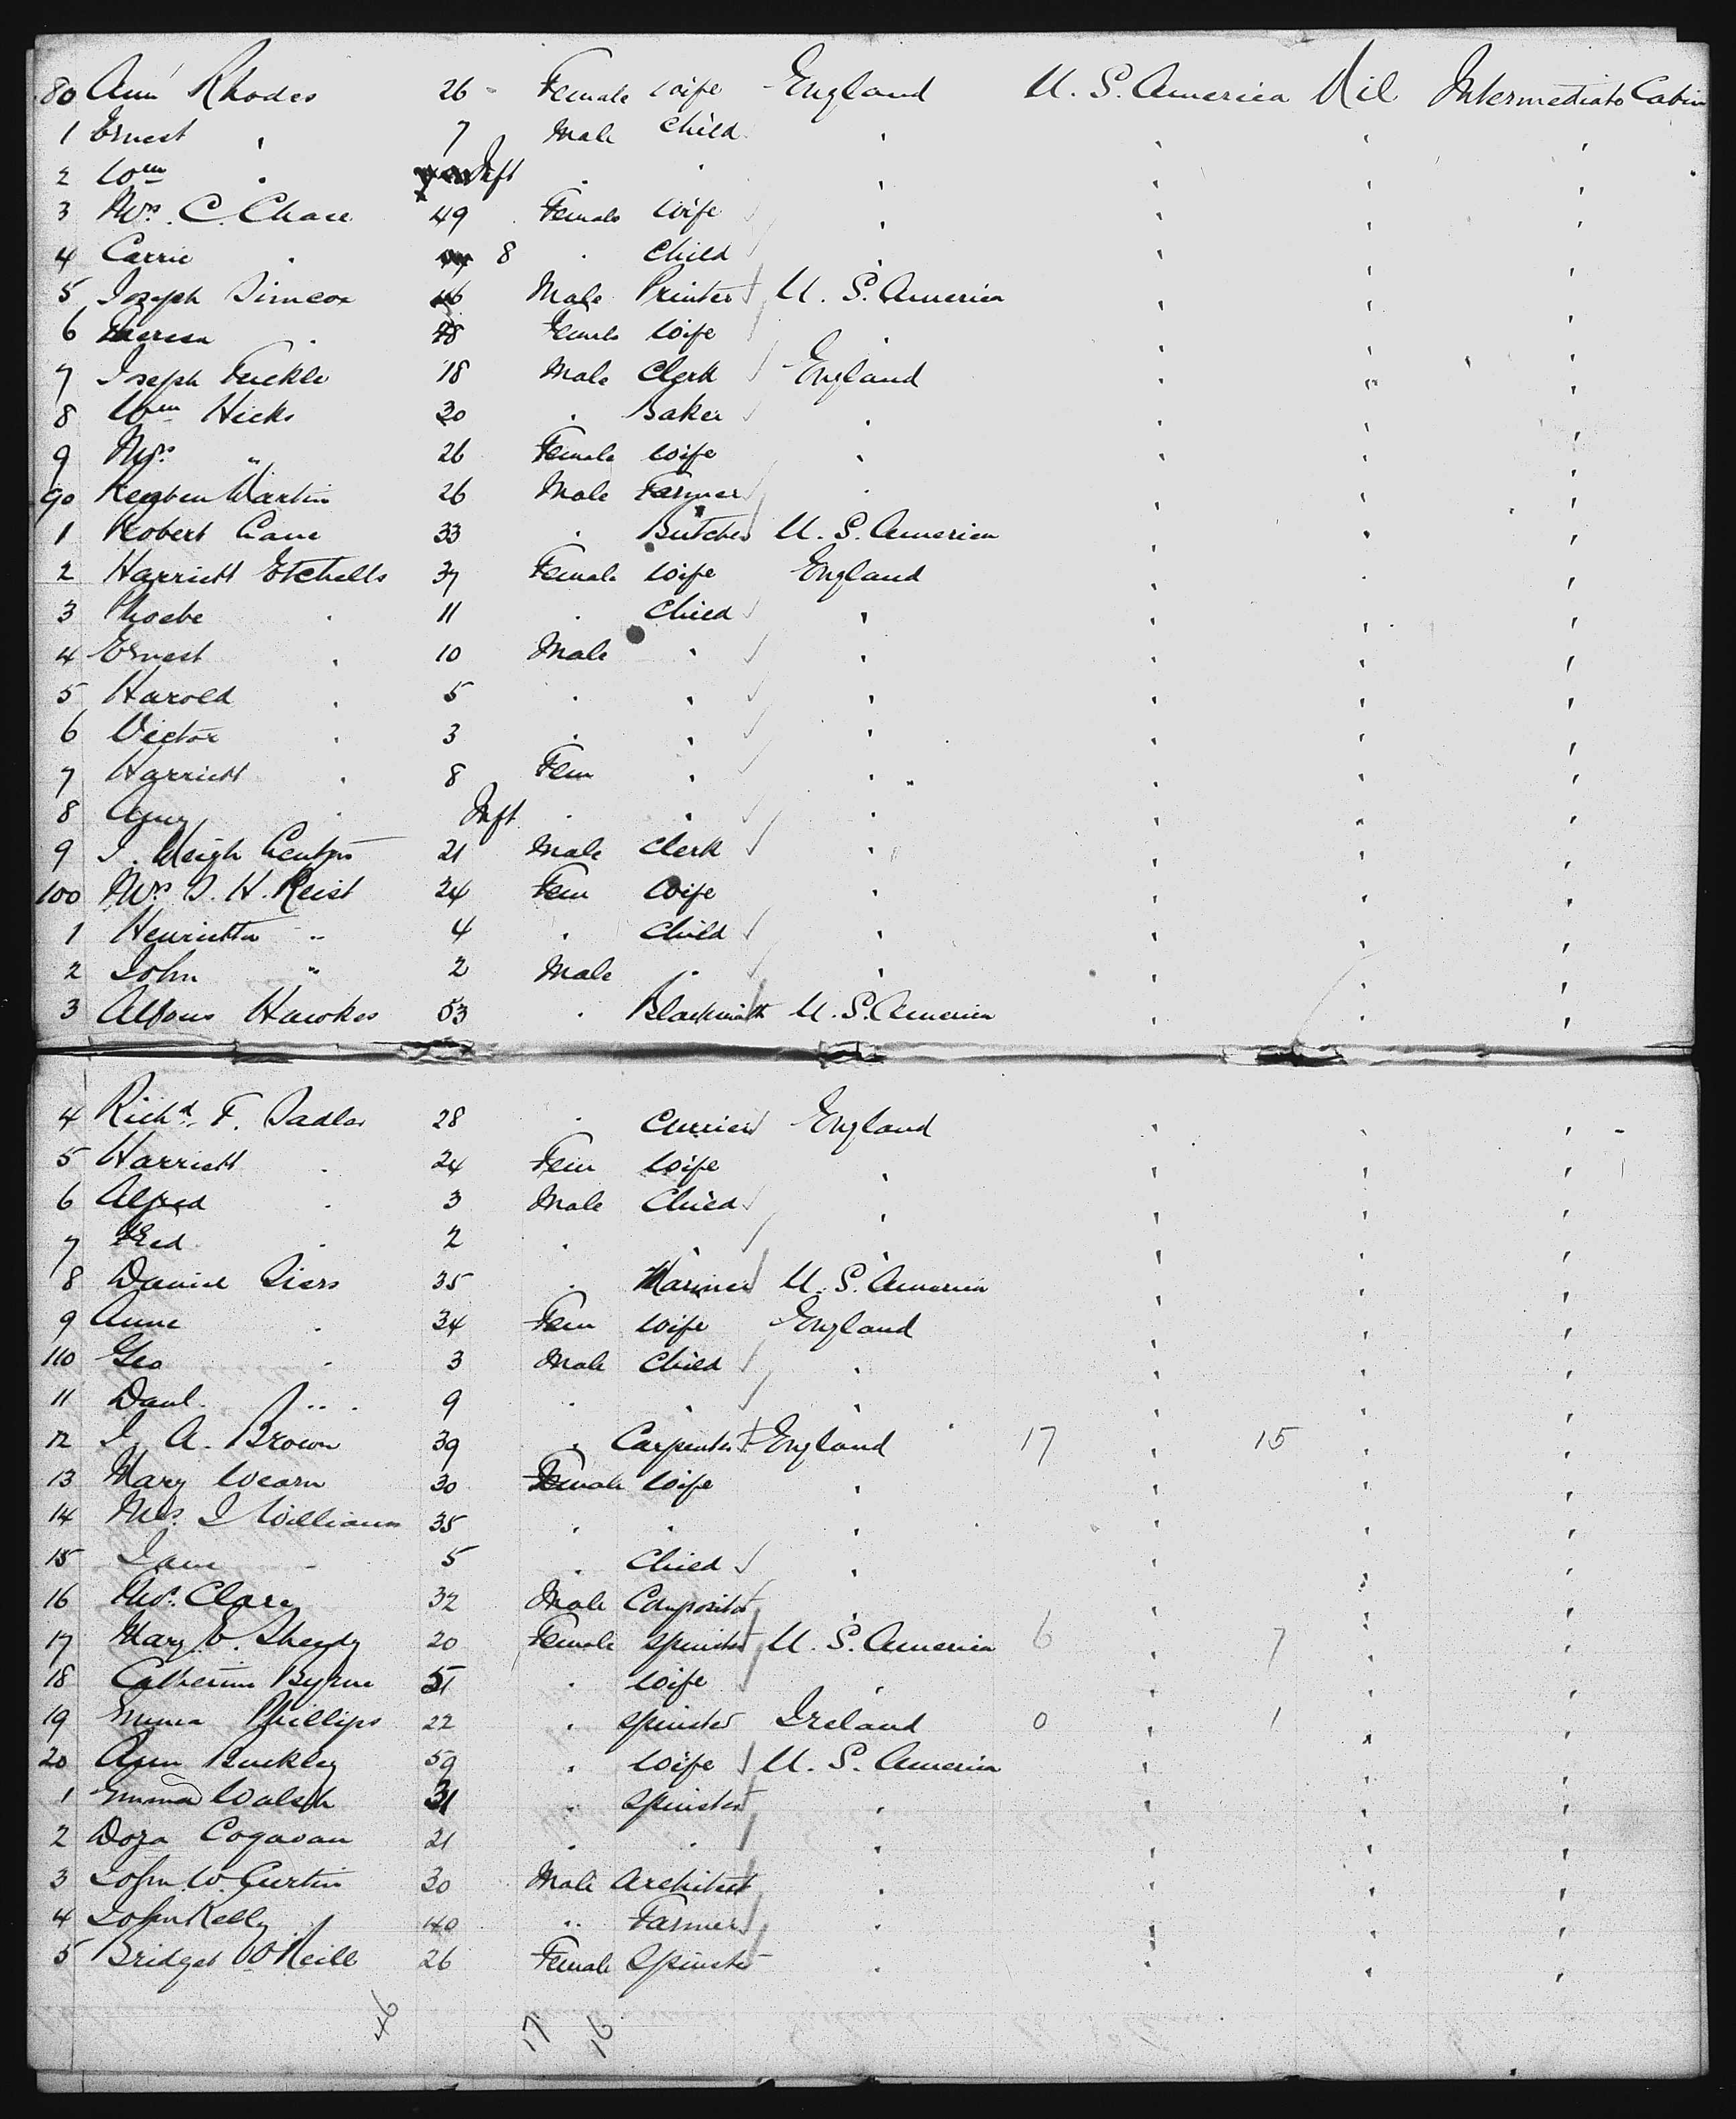 80 Ann Rhodes 26 Female Wife England U. S. America Nil Intermediate Cabin
1 Ernest " 7 Male Child " " " "
2 Wm " Inft " " " " " "
3 Mrs. C. Chace 49 Female Wife " " " "
4 Carrie " 8 " Child " " " "
5 Joseph Simcox Male Printer U. S. America " " "
6 Theresa " 48 Female Wife " " " "
7 Joseph 18 Male Clerk England " " "
8 Wm Hicks 30 " Baker " " " "
9 Mrs " 26 Female Wife " " " "
90 Reuben Martin 26 Male Farmer " " " "
1 Robert Cane 33 " Butcher U. S. America " " "
2 Harriett Etchells 37 Female Wife England " " "
3 Phoebe " 11 " Child " " " "
4 Ernest " 10 Male " " " " "
5 Harold " 5 " " " " " "
6 Victor " 3 " " " " " "
7 Harriett " 8 Fem " " " " "
8 Amy " Inft " " " " " "
9 J. 21 Male Clerk " " " "
100 Mrs D. H. Reist 24 Fem Wife " " " "
1 Henrietta " 4 " Child " " " "
2 John " 2 Male " " " " "
3 Alfons Hawkes 53 " Blacksmith U. S. America " " "
4 Richd. F. Sadler 28 " Currier England " " "
5 Harriett " 24 Fem Wife " " " "
6 Alfred " 3 Male Child " " " "
7 Fred " 2 " " " " " "
8 Daniel Siers 35 " Mariner U. S. America " " "
9 Anne " 34 Fem Wife England " " "
110 Geo " 3 Male Child " " " "
11 Danl. " 9 " " " " " "
12 J. A. Brown 39 " Carpenter England 17 " 15 " "
13 Mary Wearn 30 Female Wife " " " "
14 Mrs. J Williams 35 " " " " " "
15 Jane - 5 " Child " " " "
16 Thos. Clare 32 Male Compositor " " " "
17 Mary E. Sheedy 20 Female Spinster U. S. America 6 " 7 " "
18 Catherine Byrne 51 " Wife " " " "
19 Emma Phillips 22 " Spinster Ireland 0 " 1 " "
20 Ann Buckley 59 " Wife U. S. America " " "
1 Emma Walsh 31 " Spinster " " " "
2 Dora Cogavan 21 " " " " " "
3 John W. Curtin 30 Male Architect " " " "
4 John Kelly 40 " Farmer " " " "
5 Bridget O'Neill 26 Female Spinster " " " "
46 17 16